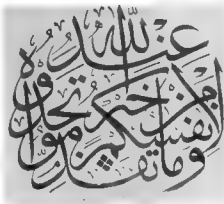 وما تقدموا
لأنفسكم من خير تجدوه
عند الله